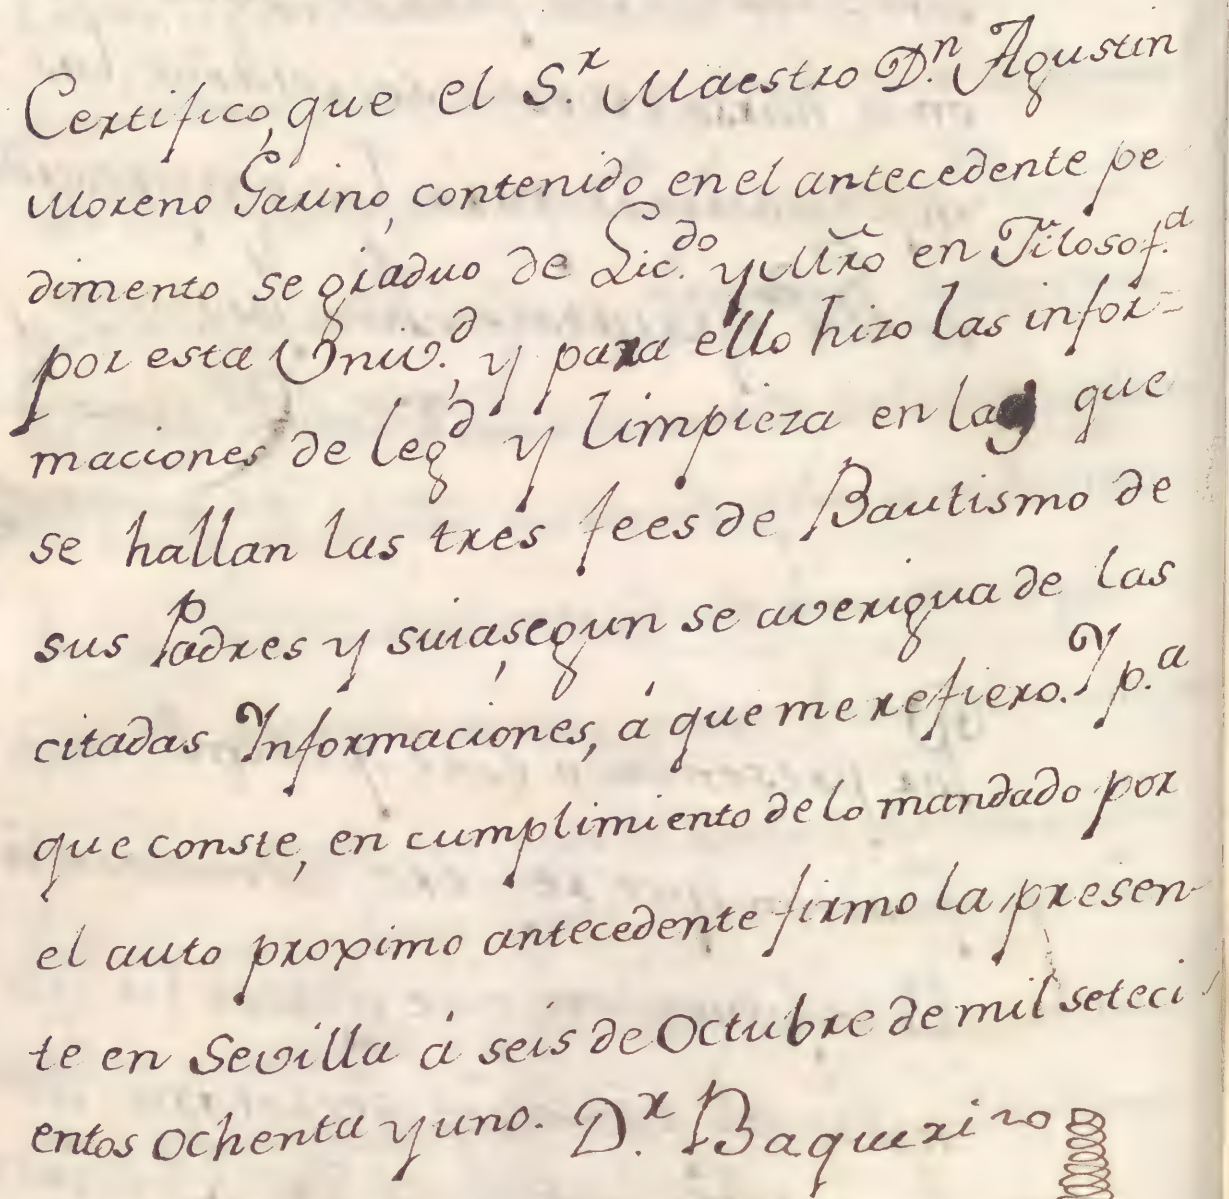 Certifico, que el S.r Maestro D.n Agustin
Moreno Garino, contenido en el antecedente pe
dimento se graduo de Lic.do y Mro en Filosof.a
por esta Univ.d, y para ello hizo las infor=
maciones de leg.d y limpieza en las que
se hallan las tres fees de Bautismo de
sus Padres y suia, segun se averigua de las
citadas Informaciones, á que me refiero. Y p.a
que conste, en cumplimiento de lo mandado por
el auto proximo antecedente firmo la presen
te en Sevilla á seis de Octubre de mil seteci
entos ochenta y uno. D.r Baquerizo